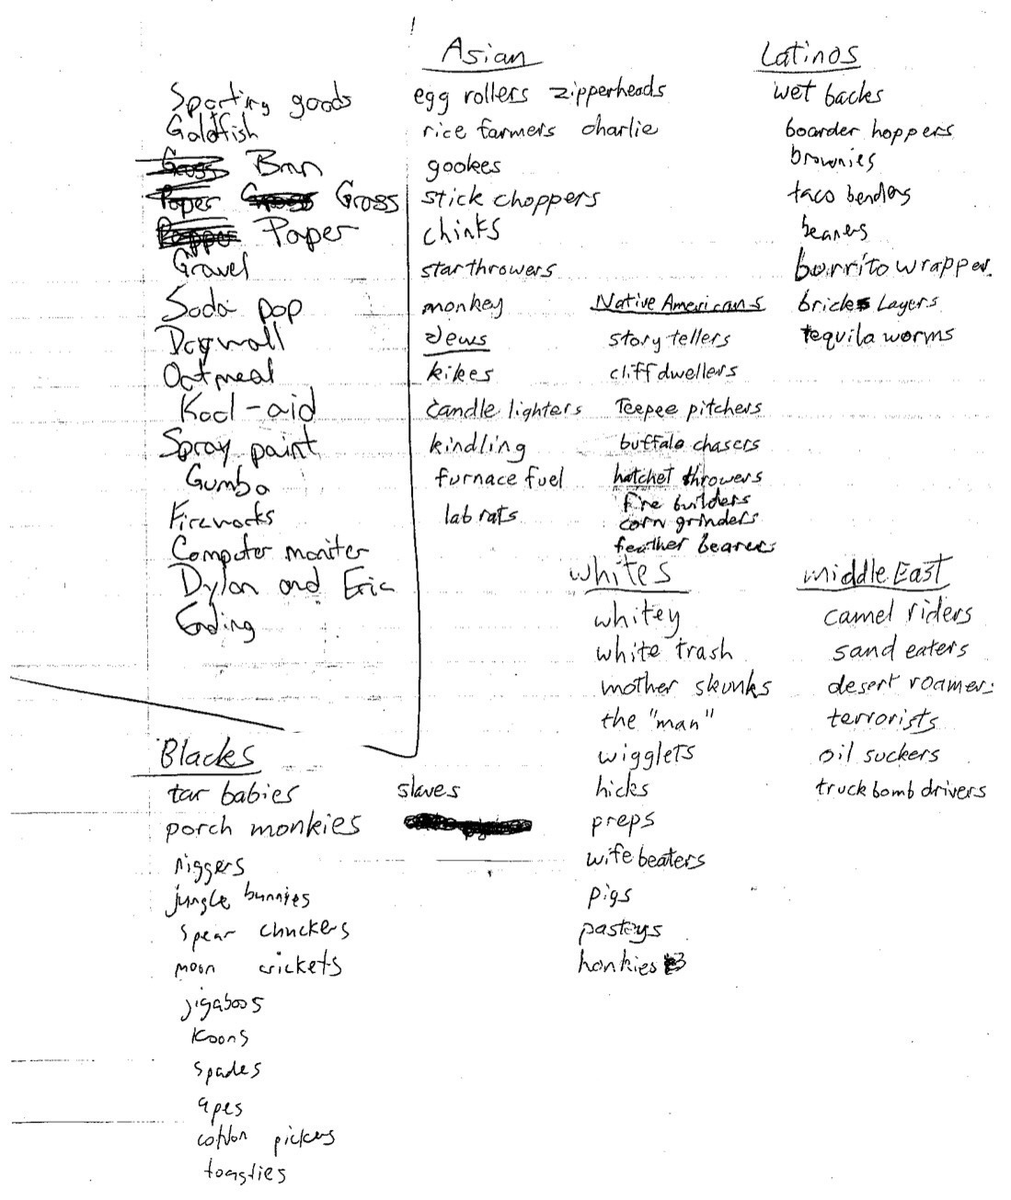 Sporting goods
Goldfish
Bnn
Gross
Paper
Gravel
Soda pop
Doqwall
Oatmeal
Kool-aid
Spray paint
Gumba
Fireworks
Computer moniter
Dylan and Eric
Ending
Asian
egg rollers zipperheads
rice farmers charlie
gookees
stick choppers
chinks
star throwers
monkey
Jews
kikes
candle lighters
kindling
furnace fuel
lab rats
Native Americans
story tellers
cliff dwellers
Teepee pitchers
buffalo chasers
hatchet throwers
fire builders
corn grinders
feather bearers
Latinos
wet backs
boarder hoppers
brownies
taco benders
beaners
burrito wrapper
bricks Layers
tequila worms
Whites
whitey
white trash
mother skunks
the "man"
wigglets
hicks
preps
wife beaters
pigs
pasteys
honkies
Middle East
camel riders
sand eaters
desert roamer
terrorists
oil suckers
truck bomb drivers
Blacks
tar babies slaves
porch monkies
niggers
jungle bunnies
spear chuckers
moon crickets
jigaboos
Koons
spades
apes
cotton pickers
toasties